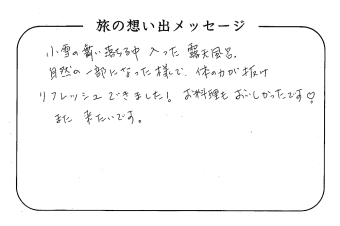 旅の想い出メッセージ
小雪の舞い落ちる中 入った 露天風呂.
自然の一部になった様で、体の力が抜け
リフレッシュできました! お料理も おいしかったです♡
また 来たいです。